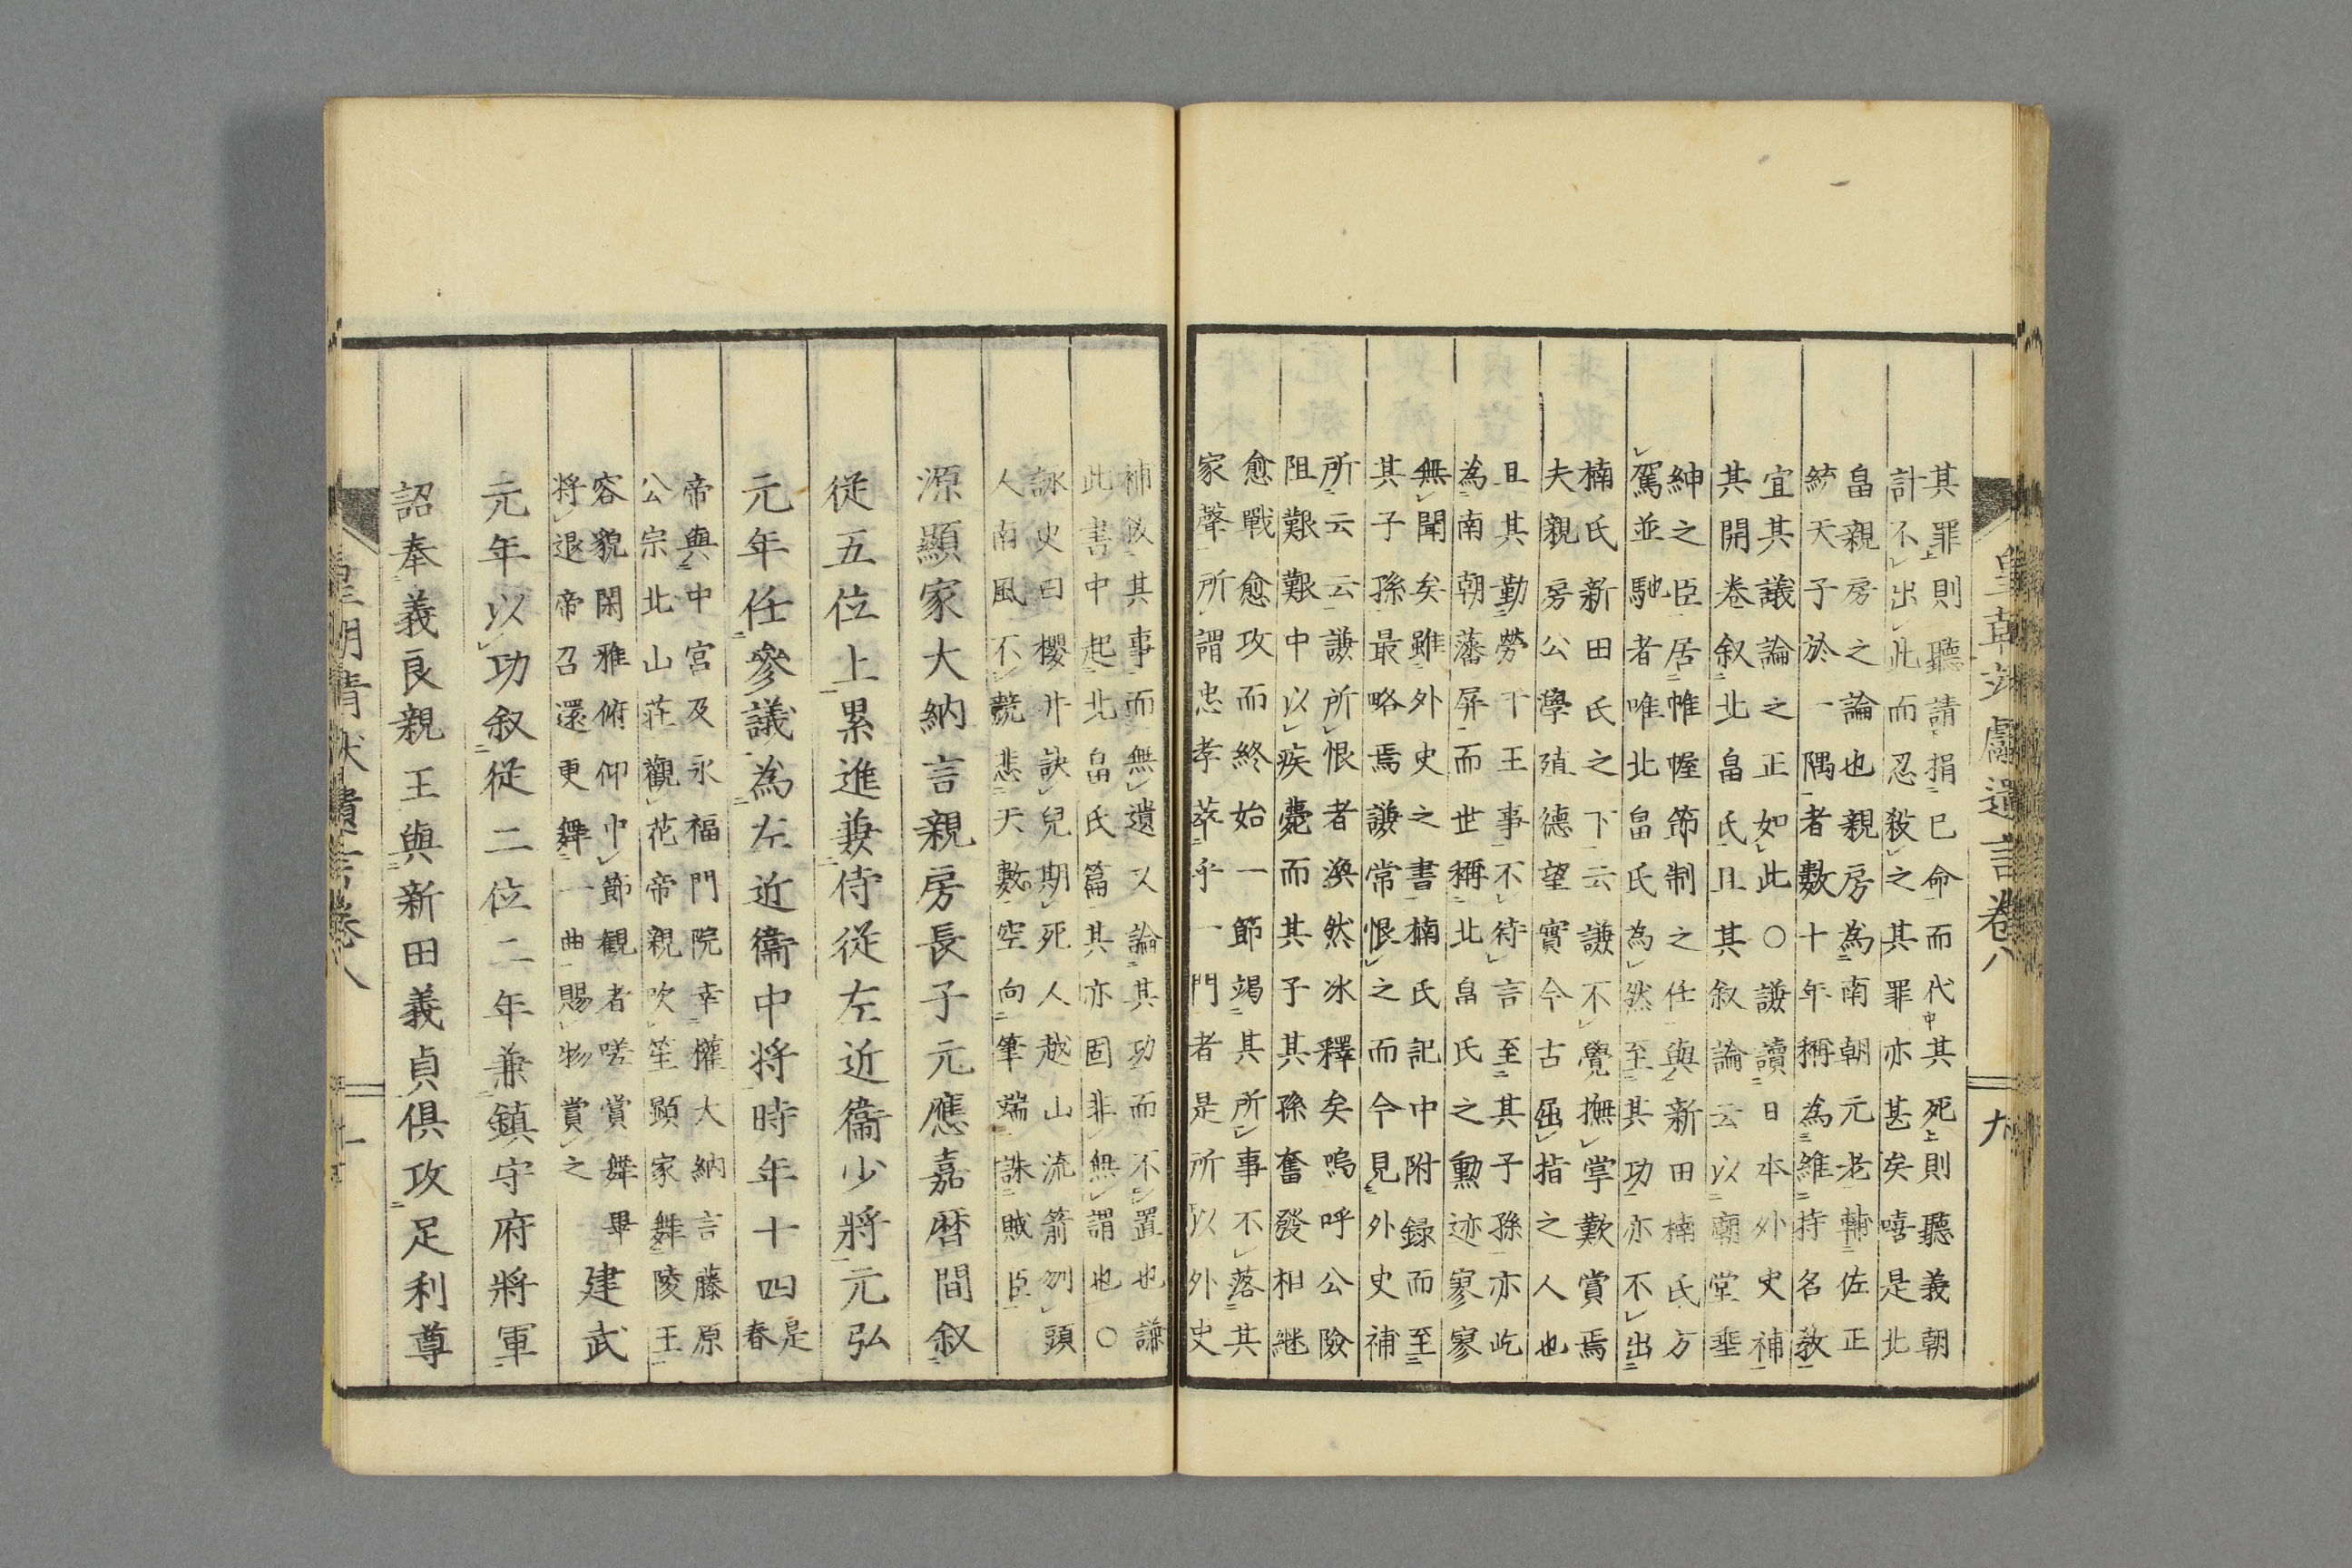 其罪則聽請捐已命而代其死則聽義朝
計不出此而忍殺之其罪亦甚矣嘻是北
畠親房之論也親房為南朝元老輔佐正
統天子於一隅者數十年稱為維持名教
宜其議論之正如此○謙讀日本外史補
其開卷叙北畠氏且其叙論云以廟堂垂
紳之臣居帷幄節制之任與新田楠氏方
駕並馳者唯北畠氏為然至其功亦不出
楠氏新田氏之下云謙不覺撫掌歎賞焉
夫親房公學殖德望實今古屈指之人也
且其勤勞干王事不待言至其子孫亦屹
為南朝藩屏而世稱北畠氏之勳迹寥寥
無聞矣雖外史之書楠氏記中附録而至
其子孫最略焉謙常恨之而今見外史補
所云云謙所恨者渙然冰釋矣嗚呼公險
阻艱艱中以疾薨而其子其孫奮發相継
愈戰愈攻而終始一節竭其所事不落其
家聲所謂忠孝萃乎一門者是所以外史
補叙其事而無遺又論其功而不置也謙
此書中起北畠氏篇其亦固非無謂也○
詠史曰櫻井訣兒期死人越山流箭刎頭
人南風不競悲天數空向筆端誅賊臣
源顯家大納言親房長子元應嘉暦間叙
従五位上累進兼侍従左近衞少將元弘
元年任參議為左近衞中将時年十四是
春
帝與中宮及永福門院幸權大納言藤原
公宗北山荘觀花帝親吹笙顕家舞陵王
容貌閑雅俯仰中節観者嗟賞舞畢
将退帝召還更舞一曲賜物賞之
建武
元年以功叙従二位二年兼鎮守府將軍
詔奉義良親王與新田義貞俱攻足利尊